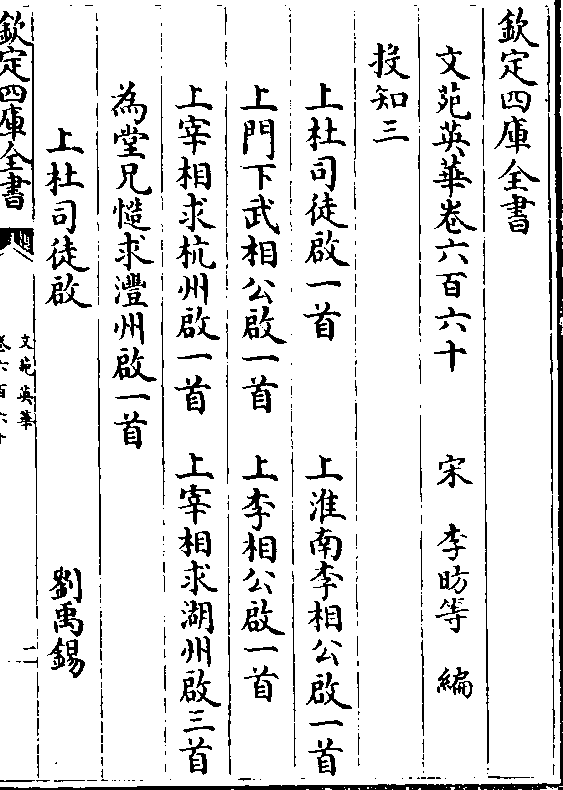 欽定四庫全書
文苑英華卷六百六十 宋 李昉等 編
投知三
上杜司徒啟一首 上淮南李相公啟一首
上門下武相公啟一首 上李相公啟一首
上宰相求杭州啟一首 上宰相求湖州啟三首
為堂兄慥求澧州啟一首
上杜司徒啟 劉禹錫
欽定四庫全書
文苑英華
卷六百六十
一